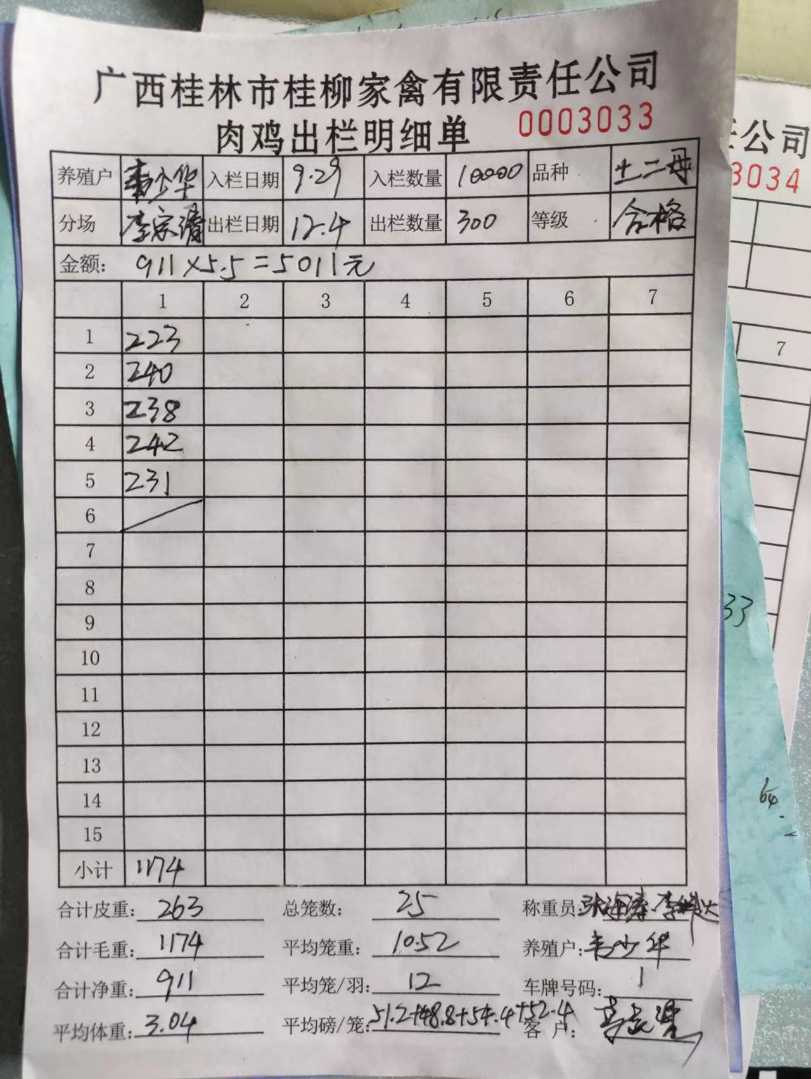 广西桂林市桂柳家禽有限责任公司
肉鸡出栏明细单 0003033
养殖户 韦少华 入栏日期 9.29 入栏数量 10000 品种 土二母
分场 出栏日期 12.4 出栏数量 300 等级 合格
金额: 911×5.5=5011元
1 2 3 4 5 6 7
1 223
2 240
3 238
4 242
5 231
6
7
8
9
10
11
12
13
14
15
小计 1174
合计皮重: 263 总笼数: 25 称重员:
合计毛重: 1174 平均笼重: 10.52 养殖户: 韦少华
合计净重: 911 平均笼/羽: 12 车牌号码: 1
平均体重: 3.04 平均磅/笼: 51.2+48.8+54.4+52.4 客 户:
任公司
3034
7
33
64